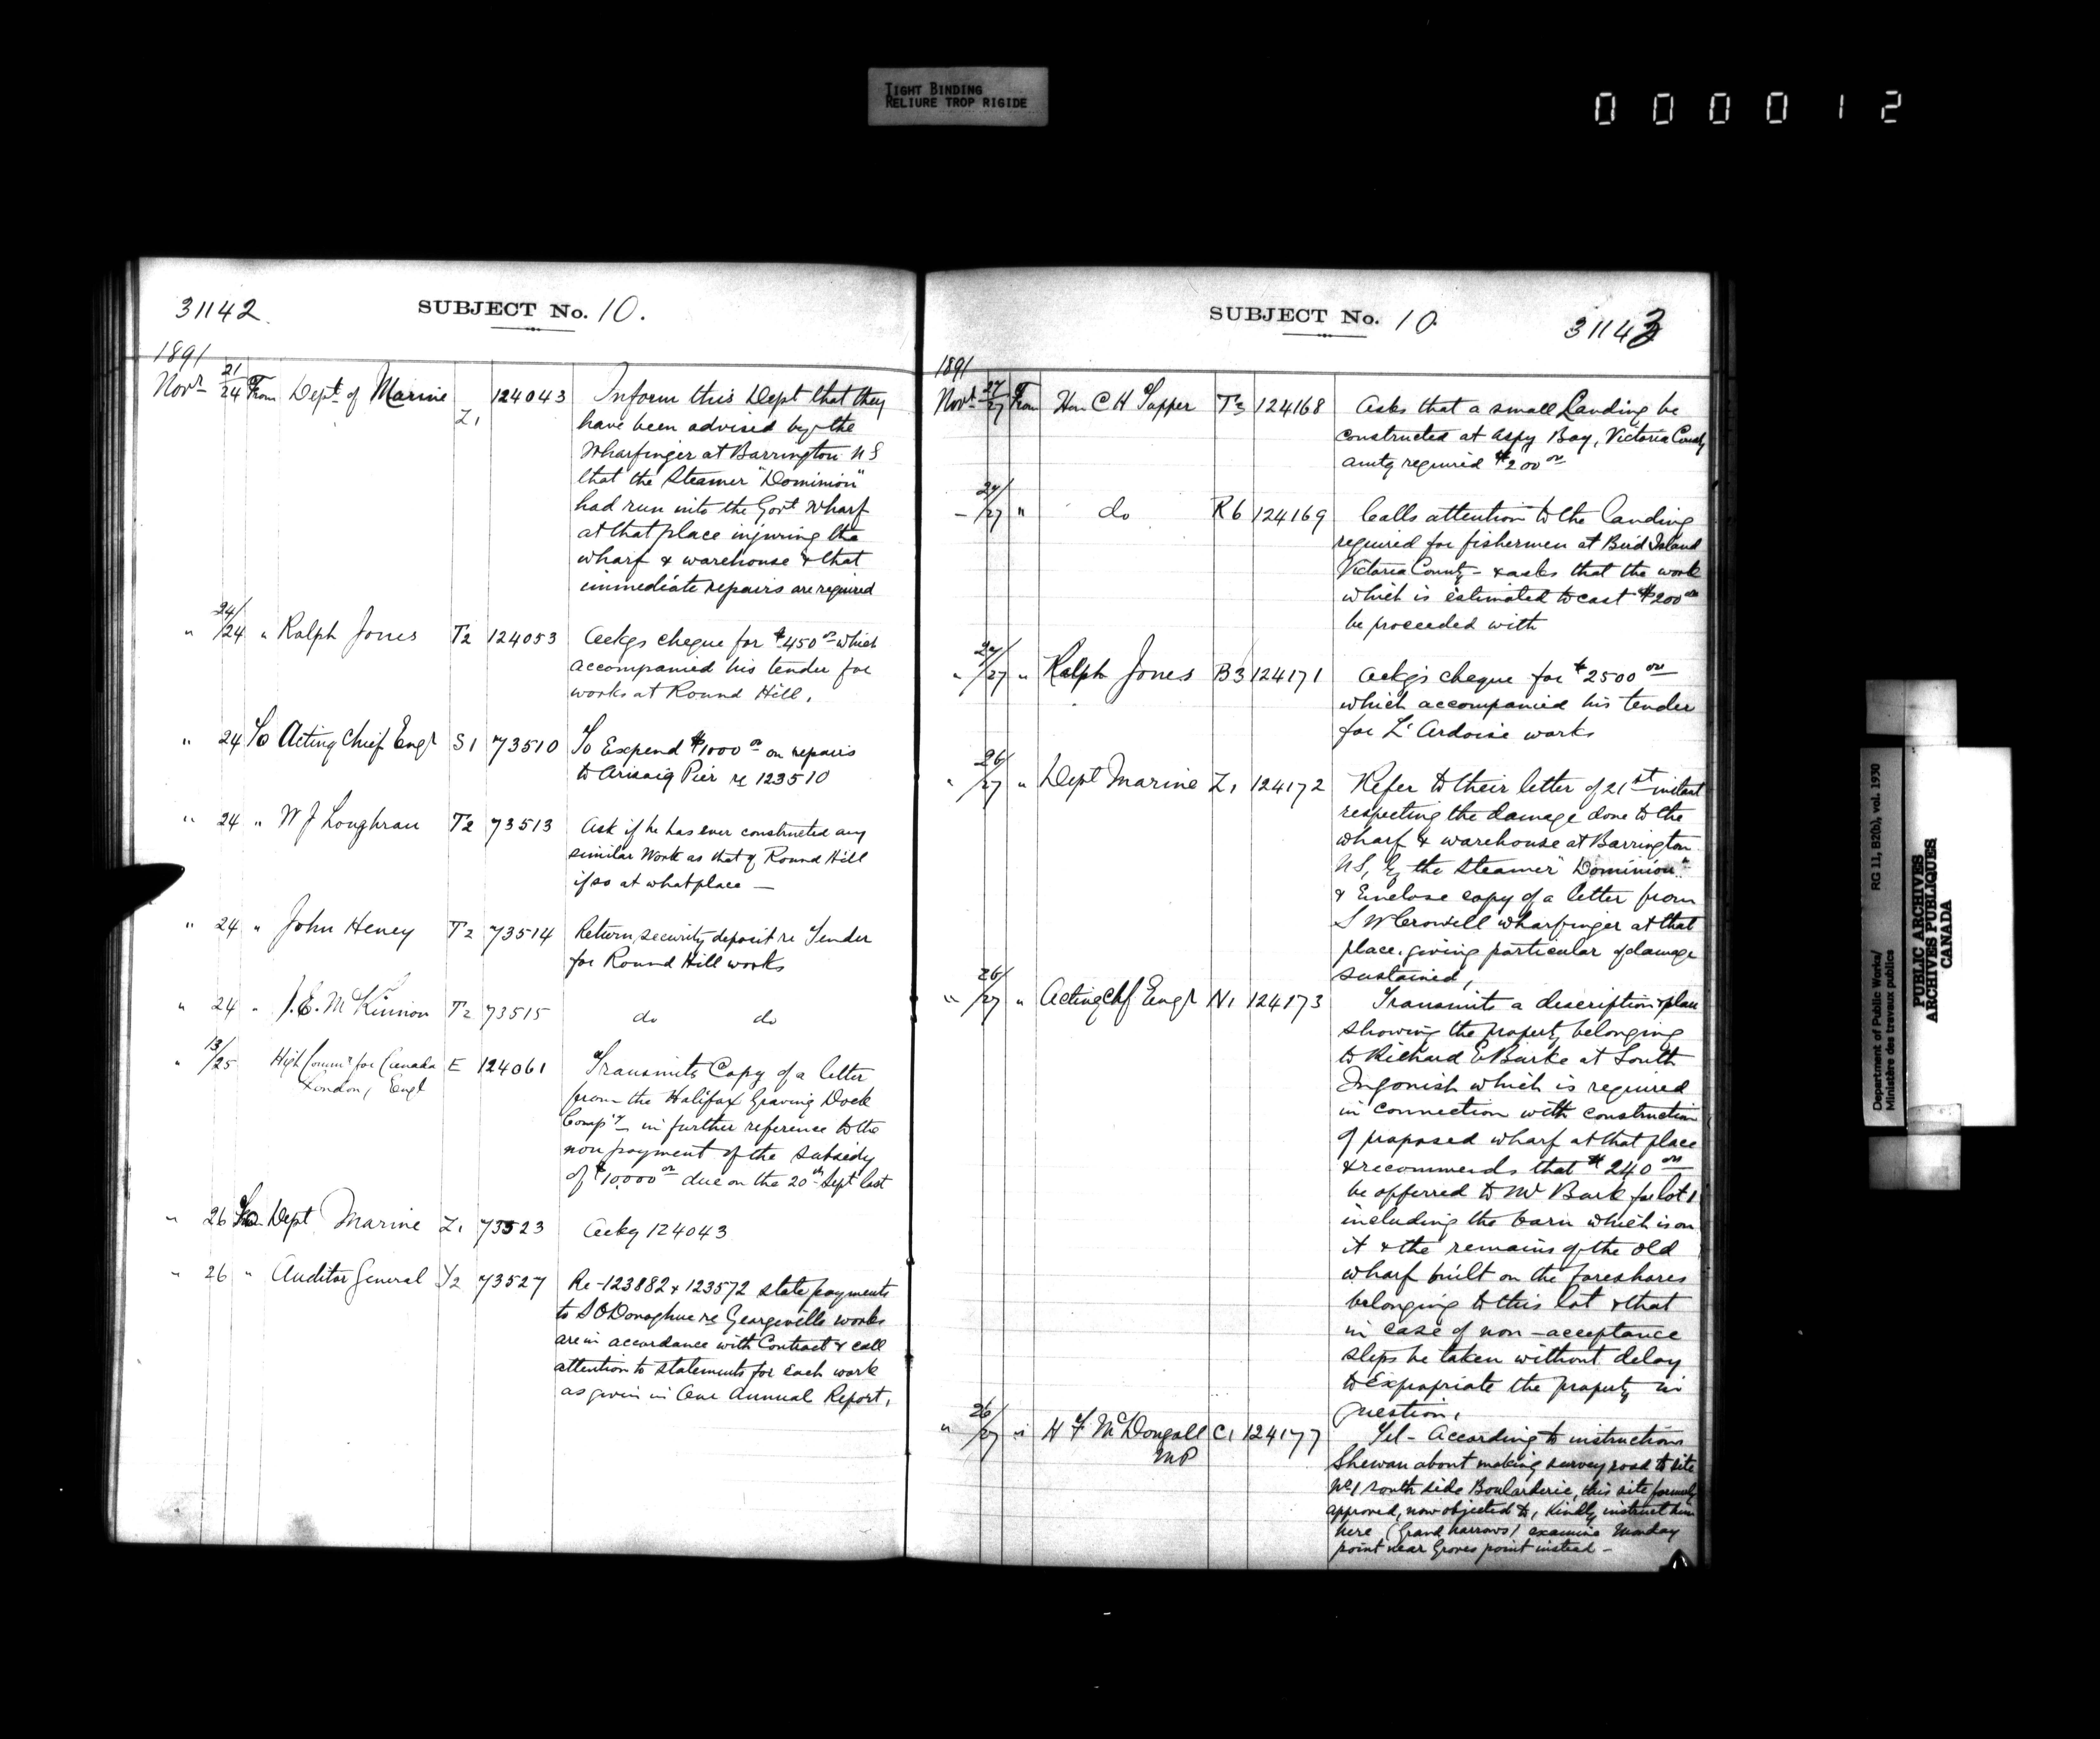 TIGHT BINDING
RELIURE TROP RIGIDE
000012
31142
SUBJECT No. 10.
1891
Novr 21/24 From Dept. of Marine Z1 124043 Inform this Dept that they
have been advised by the
Wharfinger at Barrington N S
that the Steamer "Dominion"
had run into the Govt Wharf
at that place injuring the
wharf & warehouse & that
immediate repairs are required
" 24/24 " Ralph Jones T2 124053 Ackgs cheque for $450 00 which
accompanied his tender for
works at Round Hill.
" 24 To Acting Chief Engr S1 73510 To Expend $1000 00 on repairs
to Arisaig Pier re 123510
" 24 " W J Loughran T2 73513 Ask if he has ever constructed any
similar Work as that of Round Hill
if so at what place —
" 24 " John Heney T2 73514 Return security deposit re Tender
for Round Hill works
" 24 " J. E. McKinnon T2 73515 do do
" 13/25 High Commr for Canada E 124061 Transmits Copy of a letter
London, Engl
from the Halifax Graving Dock
Compy in further reference to the
non payment of the subsidy
of $10,000 00 due on the 20th Sept last
" 26 To Dept Marine Z1 73523 Ackg 124043
" 26 " Auditor General Y2 73527 Re - 123882 & 123572 state payments
to S O'Donoghue re Georgeville works
are in accordance with Contract & call
attention to statements for each work
as given in Our Annual Report.
SUBJECT No. 10
31143
1891
Novr 27/27 From Hon C H Tupper T3 124168 Asks that a small Landing be
constructed at Aspy Bay, Victoria County
amtg required $200 00
" 27/27 " do R6 124169 Calls attention to the landing
required for fishermen at Bird Island
Victoria County - & asks that the work
which is estimated to cost $200 00
be proceeded with
" 27/27 " Ralph Jones B3 124171 Ackgs cheque for $2500 00
which accompanied his tender
for L'Ardoise works
" 26/27 " Dept Marine Z1 124172 Refer to their letter of 21st instant
respecting the damage done to the
wharf & warehouse at Barrington
NS, by the Steamer "Dominion"
& Enclose copy of a letter from
S W Crowell wharfinger at that
place, giving particular of damage
sustained,
" 26/27 " Acting Chf Engr N1 124173 Transmits a description & plan
showing the property belonging
to Richard E Burke at South
Ingonish which is required
in connection with construction
of proposed wharf at that place
& recommends that $240 00
be offerred to Mr Burk for lot 1
including the barn which is on
it & the remains of the old
wharf built on the foreshores
belonging to this lot & that
in case of non-acceptance
steps be taken without delay
to Expropriate the property in
question.
" 26/27 " H F McDougall C1 124177 Tel - According to instructions
MP
Shewan about making survey road to site
No 1 south side Boularderie, this site formerly
approved, now objected to, Kindly instruct him
here (Grand Narrows) examine Monday
point near Groves point instead -
Department of Public Works/ RG 11, B2(b), vol. 1930
Ministère des travaux publics
PUBLIC ARCHIVES
ARCHIVES PUBLIQUES
CANADA